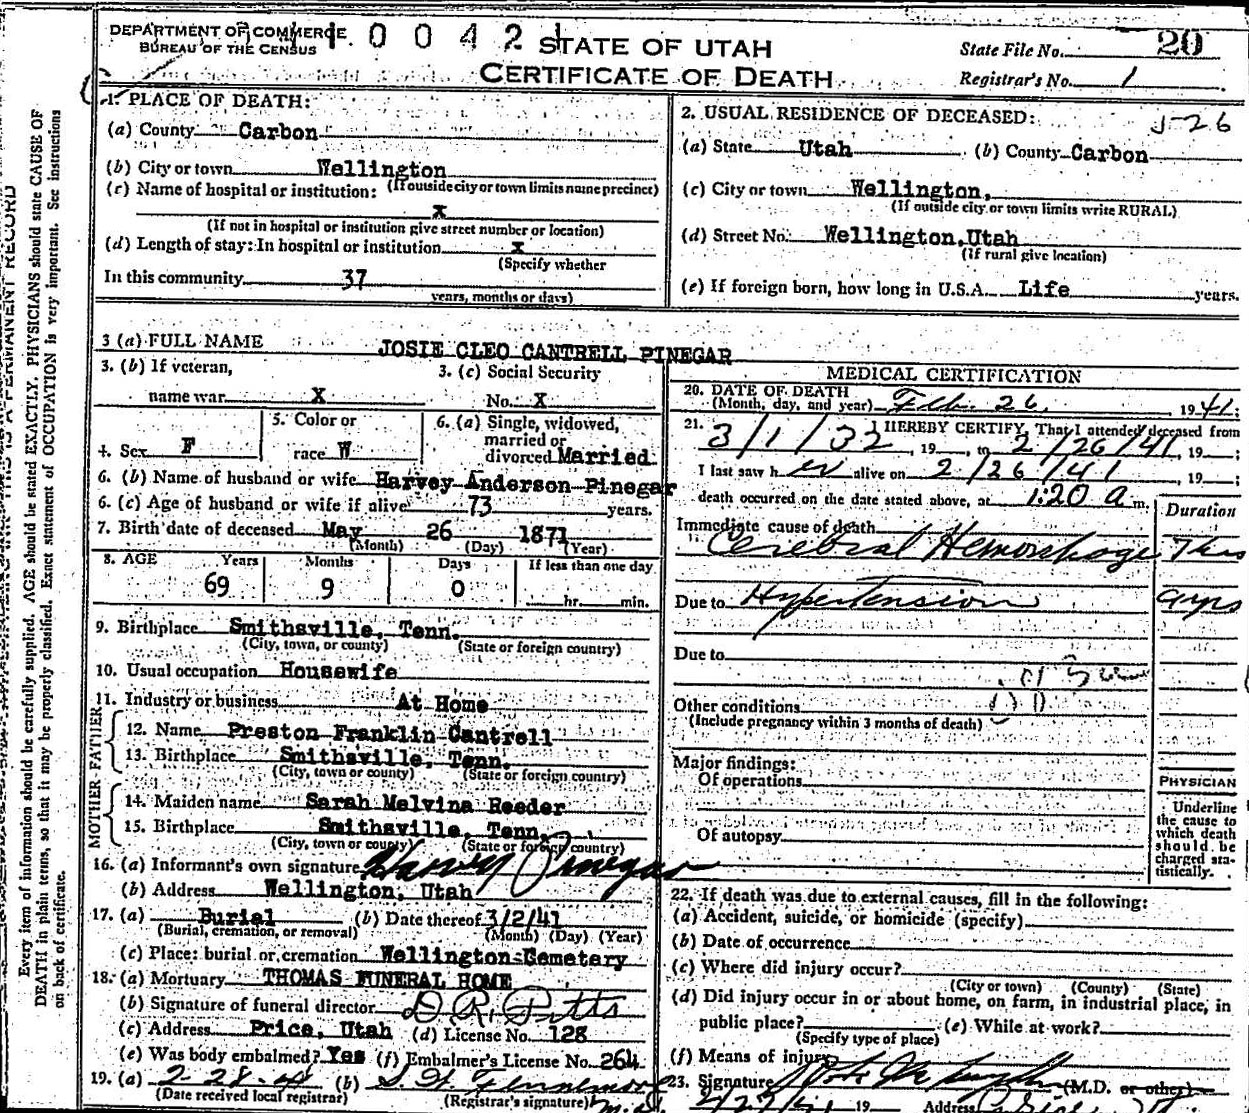 DEPARTMENT OF COMMERCE
BUREAU OF THE CENSUS
1 0 0 4 2 1
STATE OF UTAH
CERTIFICATE OF DEATH
State File No. 20
Registrar's No. 1
1. PLACE OF DEATH:
(a) County Carbon
(b) City or town Wellington
(If outside city or town limits name precinct)
(c) Name of hospital or institution:
x
(If not in hospital or institution give street number or location)
(d) Length of stay: In hospital or institution x
(Specify whether
In this community 37
years, months or days)
2. USUAL RESIDENCE OF DECEASED: J-26
(a) State Utah (b) County Carbon
(c) City or town Wellington,
(If outside city or town limits write RURAL)
(d) Street No. Wellington, Utah
(If rural give location)
(e) If foreign born, how long in U.S.A. Life years.
3 (a) FULL NAME JOSIE CLEO CANTRELL PINEGAR
3. (b) If veteran,
name war X
3. (c) Social Security
No. X
4. Sex F
5. Color or
race W
6. (a) Single, widowed,
married or
divorced Married
6. (b) Name of husband or wife Harvey Anderson Pinegar
6. (c) Age of husband or wife if alive 73 years.
7. Birth date of deceased May 26 1871
(Month) (Day) (Year)
8. AGE Years Months Days If less than one day
69 9 0 hr. min.
9. Birthplace Smithsville, Tenn.
(City, town, or county) (State or foreign country)
10. Usual occupation Housewife
11. Industry or business At Home
FATHER
12. Name Preston Franklin Cantrell
13. Birthplace Smithsville, Tenn.
(City, town or county) (State or foreign country)
MOTHER
14. Maiden name Sarah Melvina Reeder
15. Birthplace Smithsville, Tenn.
(City, town or county) (State or foreign country)
16. (a) Informant's own signature Harvey Pinegar
(b) Address Wellington, Utah
17. (a) Burial (b) Date thereof 3/2/41
(Burial, cremation, or removal) (Month) (Day) (Year)
(c) Place: burial or cremation Wellington Cemetery
18. (a) Mortuary THOMAS FUNERAL HOME
(b) Signature of funeral director D. R. Pitts
(c) Address Price, Utah (d) License No. 128
(e) Was body embalmed? Yes (f) Embalmer's License No. 264
19. (a) 2-28-41 (b) Fennemore M.D.
(Date received local registrar) (Registrar's signature)
MEDICAL CERTIFICATION
20. DATE OF DEATH
(Month, day, and year) Feb. 26, 1941;
21. I HEREBY CERTIFY, That I attended deceased from
3/1/32, 19 , to 2/26/41, 19 ;
I last saw her alive on 2/26/41, 19 ;
death occurred on the date stated above, at 1:20 a m.
Duration
Immediate cause of death
Cerebral Hemorrhage 7 hrs
Due to Hypertension 9 yrs
Due to
Other conditions
(Include pregnancy within 3 months of death)
Major findings:
Of operations
Of autopsy
PHYSICIAN
Underline
the cause to
which death
should be
charged sta-
tistically.
22. If death was due to external causes, fill in the following:
(a) Accident, suicide, or homicide (specify)
(b) Date of occurrence
(c) Where did injury occur?
(City or town) (County) (State)
(d) Did injury occur in or about home, on farm, in industrial place, in
public place? (e) While at work?
(Specify type of place)
(f) Means of injury
23. Signature (M.D. or other)
2/27/41 19 Address
Every item of information should be carefully supplied. AGE should be stated EXACTLY. PHYSICIANS should state CAUSE OF
DEATH in plain terms, so that it may be properly classified. Exact statement of OCCUPATION is very important. See Instructions
on back of certificate.